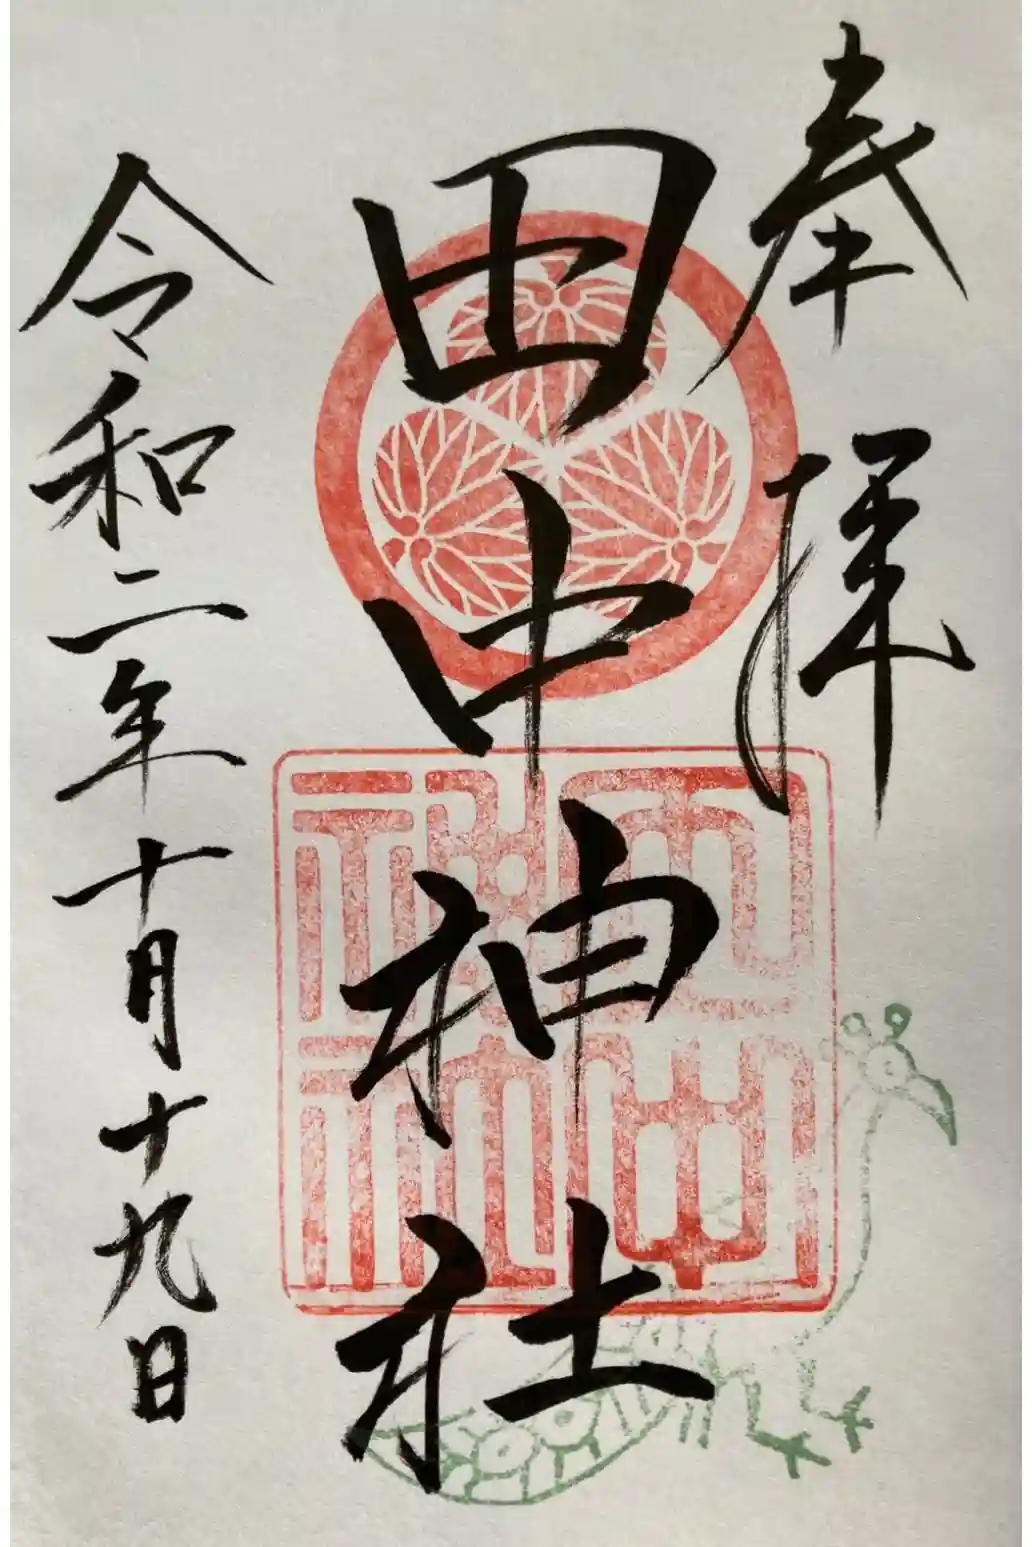 奉拝
田中神社
田中神社
令和二年十月十九日